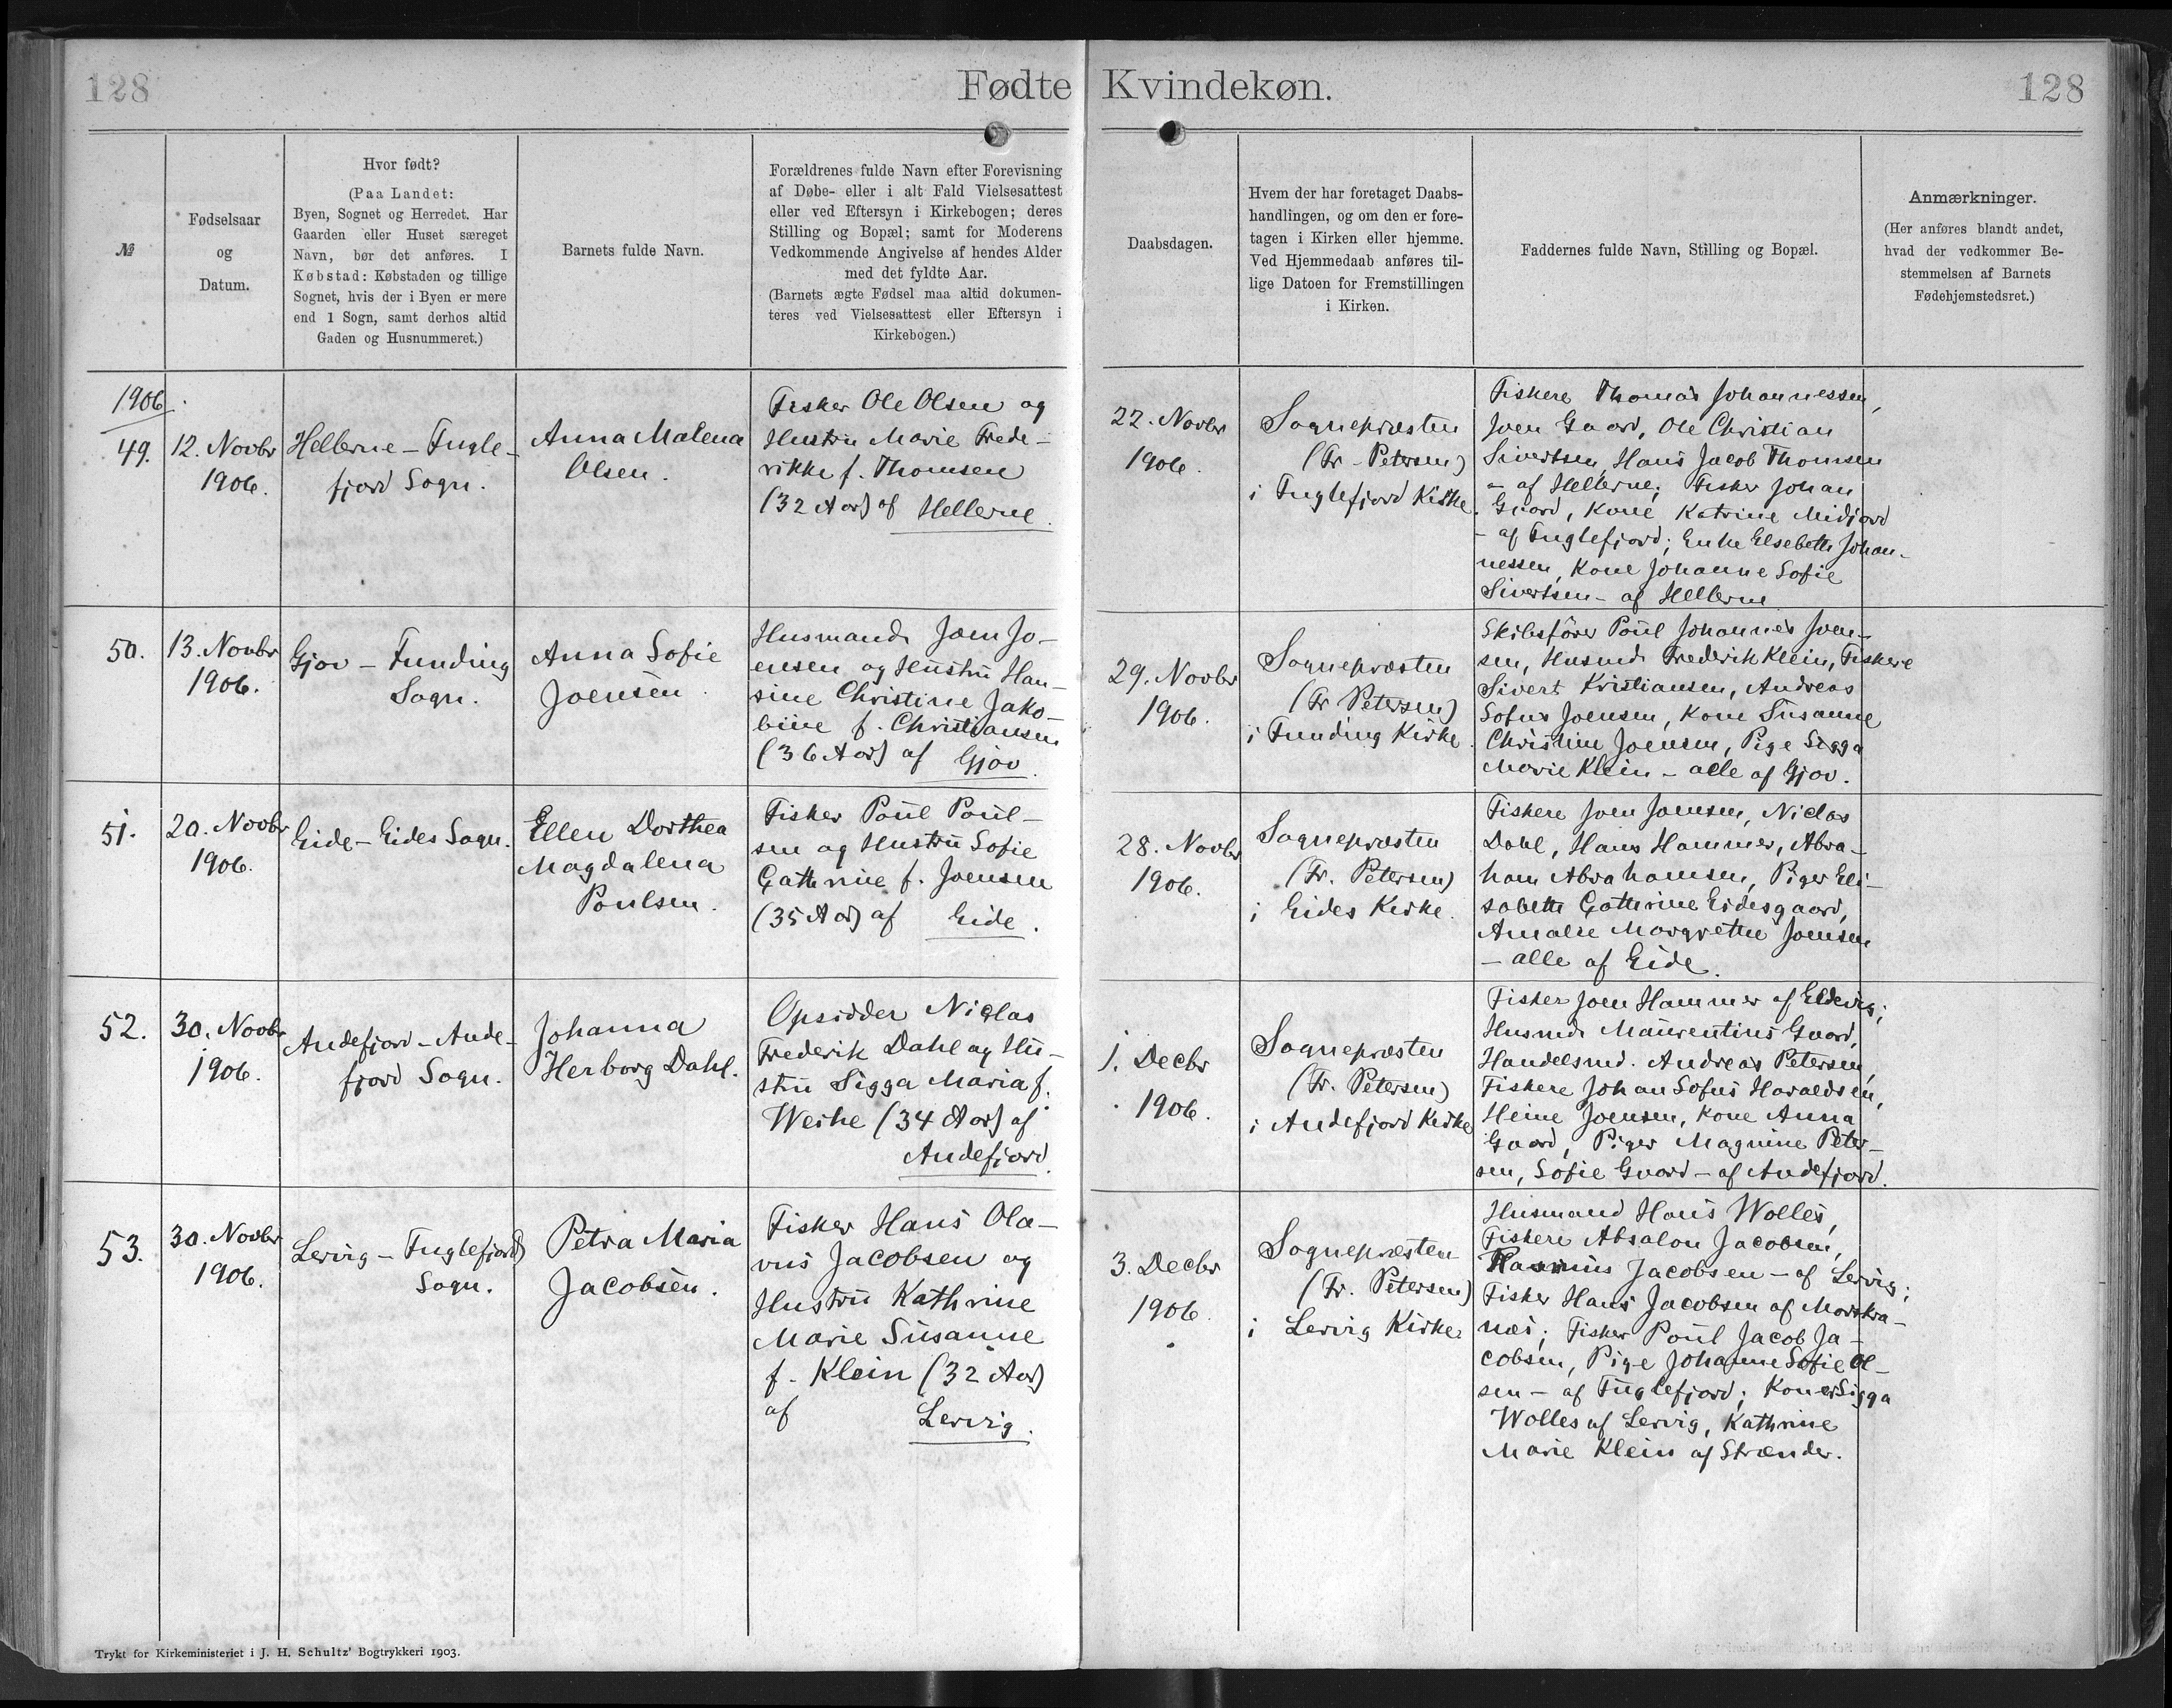 128
Fødte
Kvindekøn.
128
№
Fødselsaar
og
Datum.
Hvor født?
(Paa Landet:
Byen, Sognet og Herredet. Har
Gaarden eller Huset særeget
Navn, bør det anføres. I
Købstad: Købstaden og tillige
Sognet, hvis der i Byen er mere
end 1 Sogn, samt derhos altid
Gaden og Husnummeret.)
Barnets fulde Navn.
Forældrenes fulde Navn efter Forevisning
af Døbe- eller i alt Fald Vielsesattest
eller ved Eftersyn i Kirkebogen; deres
Stilling og Bopæl; samt for Moderens
Vedkommende Angivelse af hendes Alder
med det fyldte Aar.
(Barnets ægte Fødsel maa altid dokumen-
teres ved Vielsesattest eller Eftersyn i
Kirkebogen.)
Daabsdagen.
Hvem der har foretaget Daabs-
handlingen, og om den er fore-
tagen i Kirken eller hjemme.
Ved Hjemmedaab anføres til-
lige Datoen for Fremstillingen
i Kirken.
Faddernes fulde Navn, Stilling og Bopæl.
Anmærkninger.
(Her anføres blandt andet,
hvad der vedkommer Be-
stemmelsen af Barnets
Fødehjemstedsret.)
1906.
49.
12. Novbr
1906.
Hellerne - Fugle-
fjord Sogn.
Anna Malena
Olsen.
Fisker Ole Olsen og
Hustru Marie Frede-
rikke f. Thomsen
(32 Aar) af Hellerne.
22. Novbr
1906.
Sognepræsten
(Fr. Petersen)
i Fuglefjord Kirke.
Fiskere Thomas Johannessen,
Joen Gaard, Ole Christian
Sivertsen, Hans Jacob Thomsen
- af Hellerne; Fisker Johan
Gaard, Kone Katrine Midjord
- af Fuglefjord; Enke Elsebeth Johan-
nessen, Kone Johanne Sofie
Sivertsen - af Hellerne
50.
13. Novbr
1906.
Gjov - Funding
Sogn.
Anna Sofie
Joensen.
Husmand Joen Jo-
ensen og Hustru Han-
sine Christine Jako-
bine f. Christiansen
(36 Aar) af Gjov.
29. Novbr
1906.
Sognepræsten
(Fr Petersen)
i Funding Kirke.
Skibsfører Poul Johannes Joen-
sen, Husmd. Frederik Klein, Fiskere
Sivert Kristiansen, Andreas
Sofus Joensen, Kone Susanne
Christine Joensen, Pige Sigga
Marie Klein - alle af Gjov.
51.
20. Novbr
1906.
Eide - Eides Sogn.
Ellen Dorthea
Magdalena
Poulsen.
Fisker Poul Poul-
sen og Hustru Sofie
Cathrine f. Joensen
(35 Aar) af Eide.
28. Novbr
1906.
Sognepræsten
(Fr. Petersen)
i Eides Kirke.
Fiskere Joen Joensen, Niclas
Dahl, Hans Hammer, Abra-
ham Abrahamsen, Piger Eli-
sabeth Cathrine Eidesgaard,
Amalie Margrethe Joensen
- alle af Eide.
52.
30. Novbr
1906.
Andefjord - Ande-
fjord Sogn.
Johanna
Herborg Dahl.
Opsidder Niclas
Frederik Dahl og Hu-
stru Sigga Maria f.
Weihe (34 Aar) af
Andefjord.
1. Decbr
1906.
Sognepræsten
(Fr. Petersen)
i Andefjord Kirke
Fisker Joen Hammer af Eldevig;
Husmd. Maurentius Gaard,
Handelsmd. Andreas Petersen,
Fiskere Johan Sofus Haraldsen,
Heine Joensen, Kone Anna
Gaard, Piger Magnine Peter-
sen, Sofie Gaard - af Andefjord.
53.
30. Novbr
1906.
Lervig - Fuglefjord
Sogn.
Petra Maria
Jacobsen.
Fisker Hans Ola-
vus Jacobsen og
Hustru Kathrine
Marie Susanne
f. Klein (32 Aar)
af Lervig.
3. Decbr
1906.
Sognepræsten
(Fr. Petersen)
i Lervig Kirke
Husmand Hans Wolles,
Fiskere Absalon Jacobsen,
Rasmus Jacobsen - af Lervig;
Fisker Hans Jacobsen af Morskra-
næs; Fisker Poul Jacob Ja-
cobsen, Pige Johanne Sofie Ol-
sen - af Fuglefjord; Koner Sigga
Wolles af Lervig, Kathrine
Marie Klein af Strænder.
Trykt for Kirkeministeriet i J. H. Schultz' Bogtrykkeri 1903.